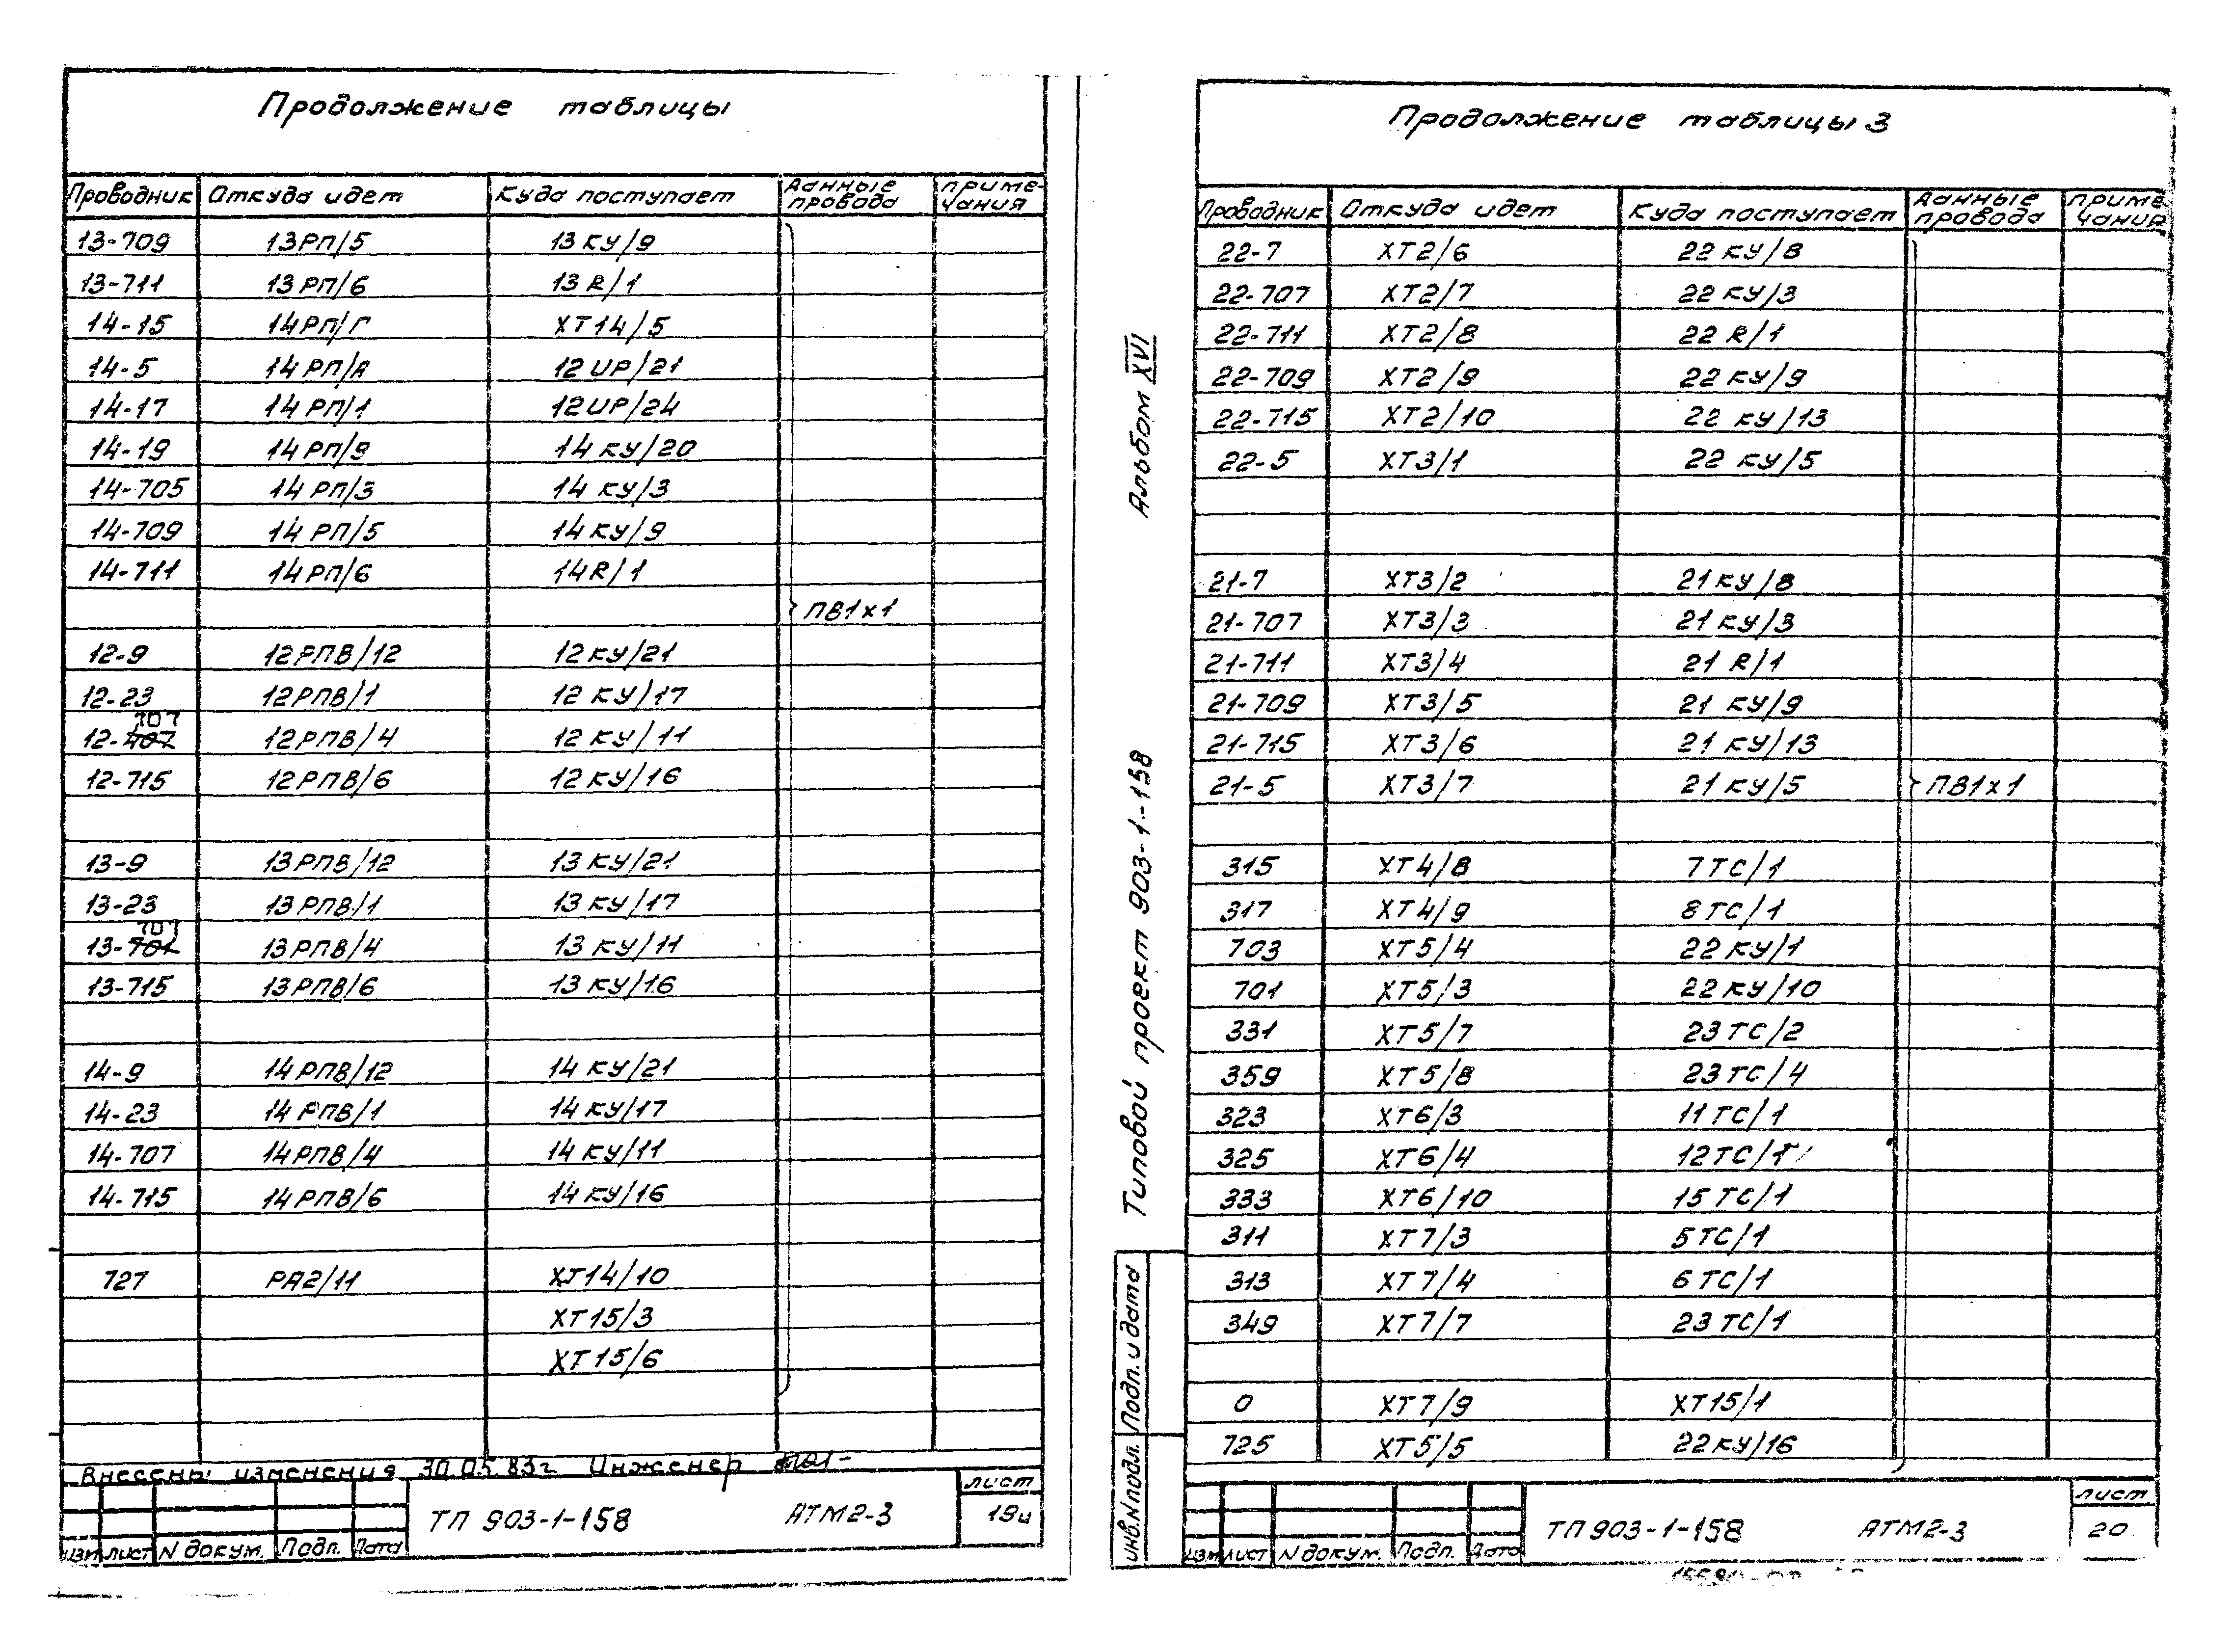 Продолжение таблицы
Проводник Откуда идет Куда поступает Данные провода Приме-чания
13-709 13РП/5 13КУ/9
13-711 13РП/6 13R/1
14-15 14РП/Г ХТ14/5
14-5 14РП/А 12UP/21
14-17 14РП/1 12UP/24
14-19 14РП/9 14КУ/20
14-705 14РП/3 14КУ/3
14-709 14РП/5 14КУ/9
14-711 14РП/6 14R/1
ПВ1х1
12-9 12РПВ/12 12КУ/21
12-23 12РПВ/1 12КУ/17
707
12-407 12РПВ/4 12КУ/11
12-715 12РПВ/6 12КУ/16
13-9 13РПВ/12 13КУ/21
13-23 13РПВ/1 13КУ/17
707
13-701 13РПВ/4 13КУ/11
13-715 13РПВ/6 13КУ/16
14-9 14РПВ/12 14КУ/21
14-23 14РПВ/1 14КУ/17
14-707 14РПВ/4 14КУ/11
14-715 14РПВ/6 14КУ/16
727 РА2/11 ХТ14/10
ХТ15/3
ХТ15/6
Внесены изменения 30.05.83г Инженер
ТП 903-1-158 АТМ2-3 лист 19и
изм лист N докум. Подп. Дата
Альбом XVI
Типовой проект 903-1-158
Подп. и дата
инв.N подл.
Продолжение таблицы 3
Проводник Откуда идет Куда поступает Данные провода Приме чания
22-7 ХТ2/6 22КУ/8
22-707 ХТ2/7 22КУ/3
22-711 ХТ2/8 22R/1
22-709 ХТ2/9 22КУ/9
22-715 ХТ2/10 22КУ/13
22-5 ХТ3/1 22КУ/5
21-7 ХТ3/2 21КУ/8
21-707 ХТ3/3 21КУ/3
21-711 ХТ3/4 21R/1
21-709 ХТ3/5 21КУ/9
21-715 ХТ3/6 21КУ/13
21-5 ХТ3/7 21КУ/5 ПВ1х1
315 ХТ4/8 7ТС/1
317 ХТ4/9 8ТС/1
703 ХТ5/4 22КУ/1
701 ХТ5/3 22КУ/10
331 ХТ5/7 23ТС/2
359 ХТ5/8 23ТС/4
323 ХТ6/3 11ТС/1
325 ХТ6/4 12ТС/1
333 ХТ6/10 15ТС/1
311 ХТ7/3 5ТС/1
313 ХТ7/4 6ТС/1
349 ХТ7/7 23ТС/1
0 ХТ7/9 ХТ15/1
725 ХТ5/5 22КУ/16
ТП 903-1-158 АТМ2-3 лист 20
изм лист N докум. Подп. Дата